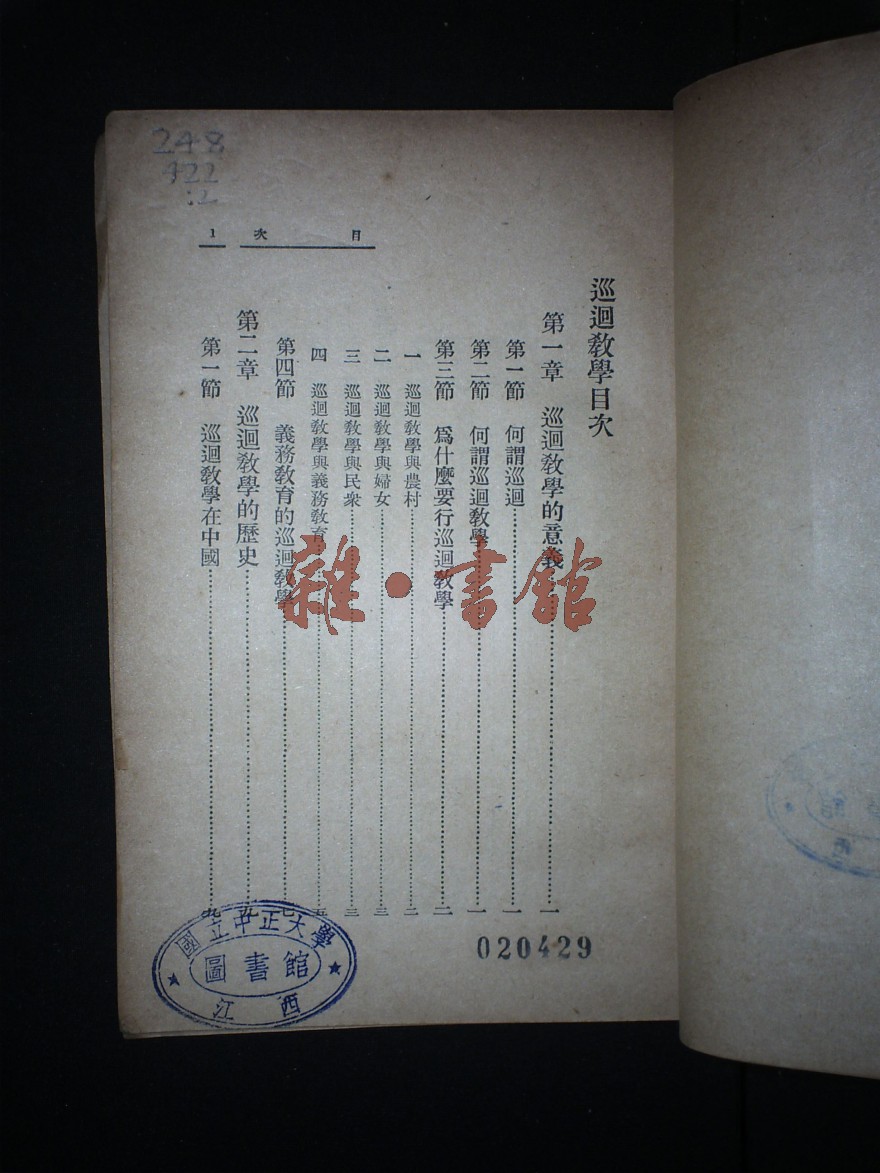 巡迴教學目次
第一章 巡迴教學的意義……一
第一節 何謂巡迴……一
第二節 何謂巡迴教學……一
第三節 爲什麼要行巡迴教學……二
一 巡迴教學與農村……二
二 巡迴教學與婦女……三
三 巡迴教學與民衆……三
四 巡迴教學與義務教育……五
第四節 義務教育的巡迴教學……七
第二章 巡迴教學的歷史……九
第一節 巡迴教學在中國……九
目次 1
248
雜·書館
020429
國立中正大學
圖書館
江西